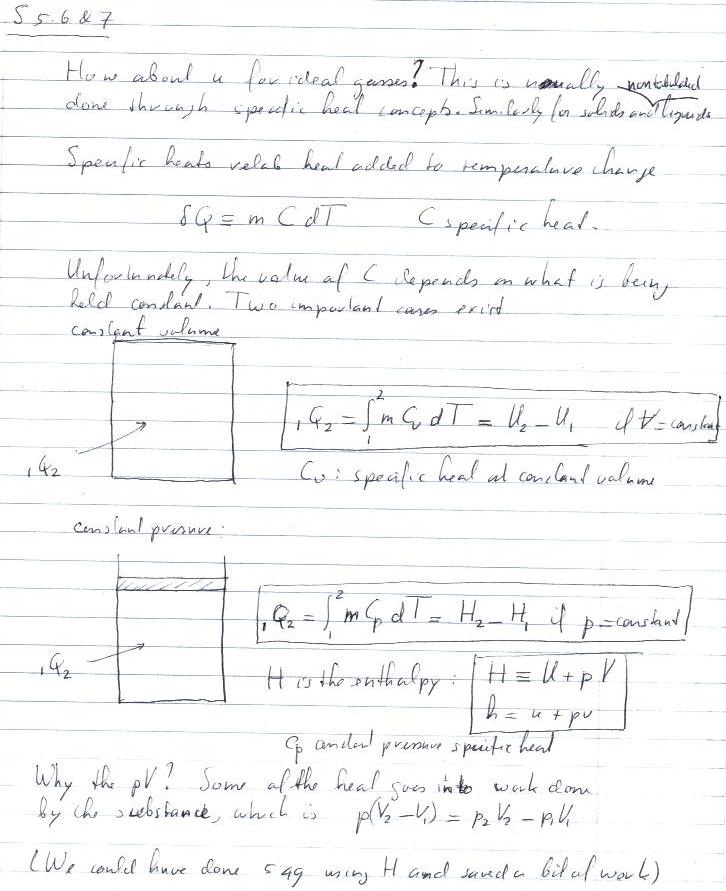 S 5.6 & 7
How about u for ideal gasses? This is usually nontabulated
done through specific heat concepts. Similarly for solids and liquids
Specific heats relate heat added to temperature change
δQ ≡ m C dT C specific heat.
Unfortunately, the value of C depends on what is being
held constant. Two important cases exist
constant volume
₁Q₂ = ∫₁² m Cv dT = U₂ - U₁ if V = constant
₁Q₂
Cv : specific heat at constant volume
constant pressure :
₁Q₂ = ∫₁² m Cp dT = H₂ - H₁ if p = constant
₁Q₂
H is the enthalpy : H ≡ U + pV
h = u + pv
Cp constant pressure specific heat
Why the pV? Some of the heat goes into work done
by the substance, which is p(V₂ - V₁) = p₂V₂ - p₁V₁
(We could have done 5.49 using H and saved a bit of work)